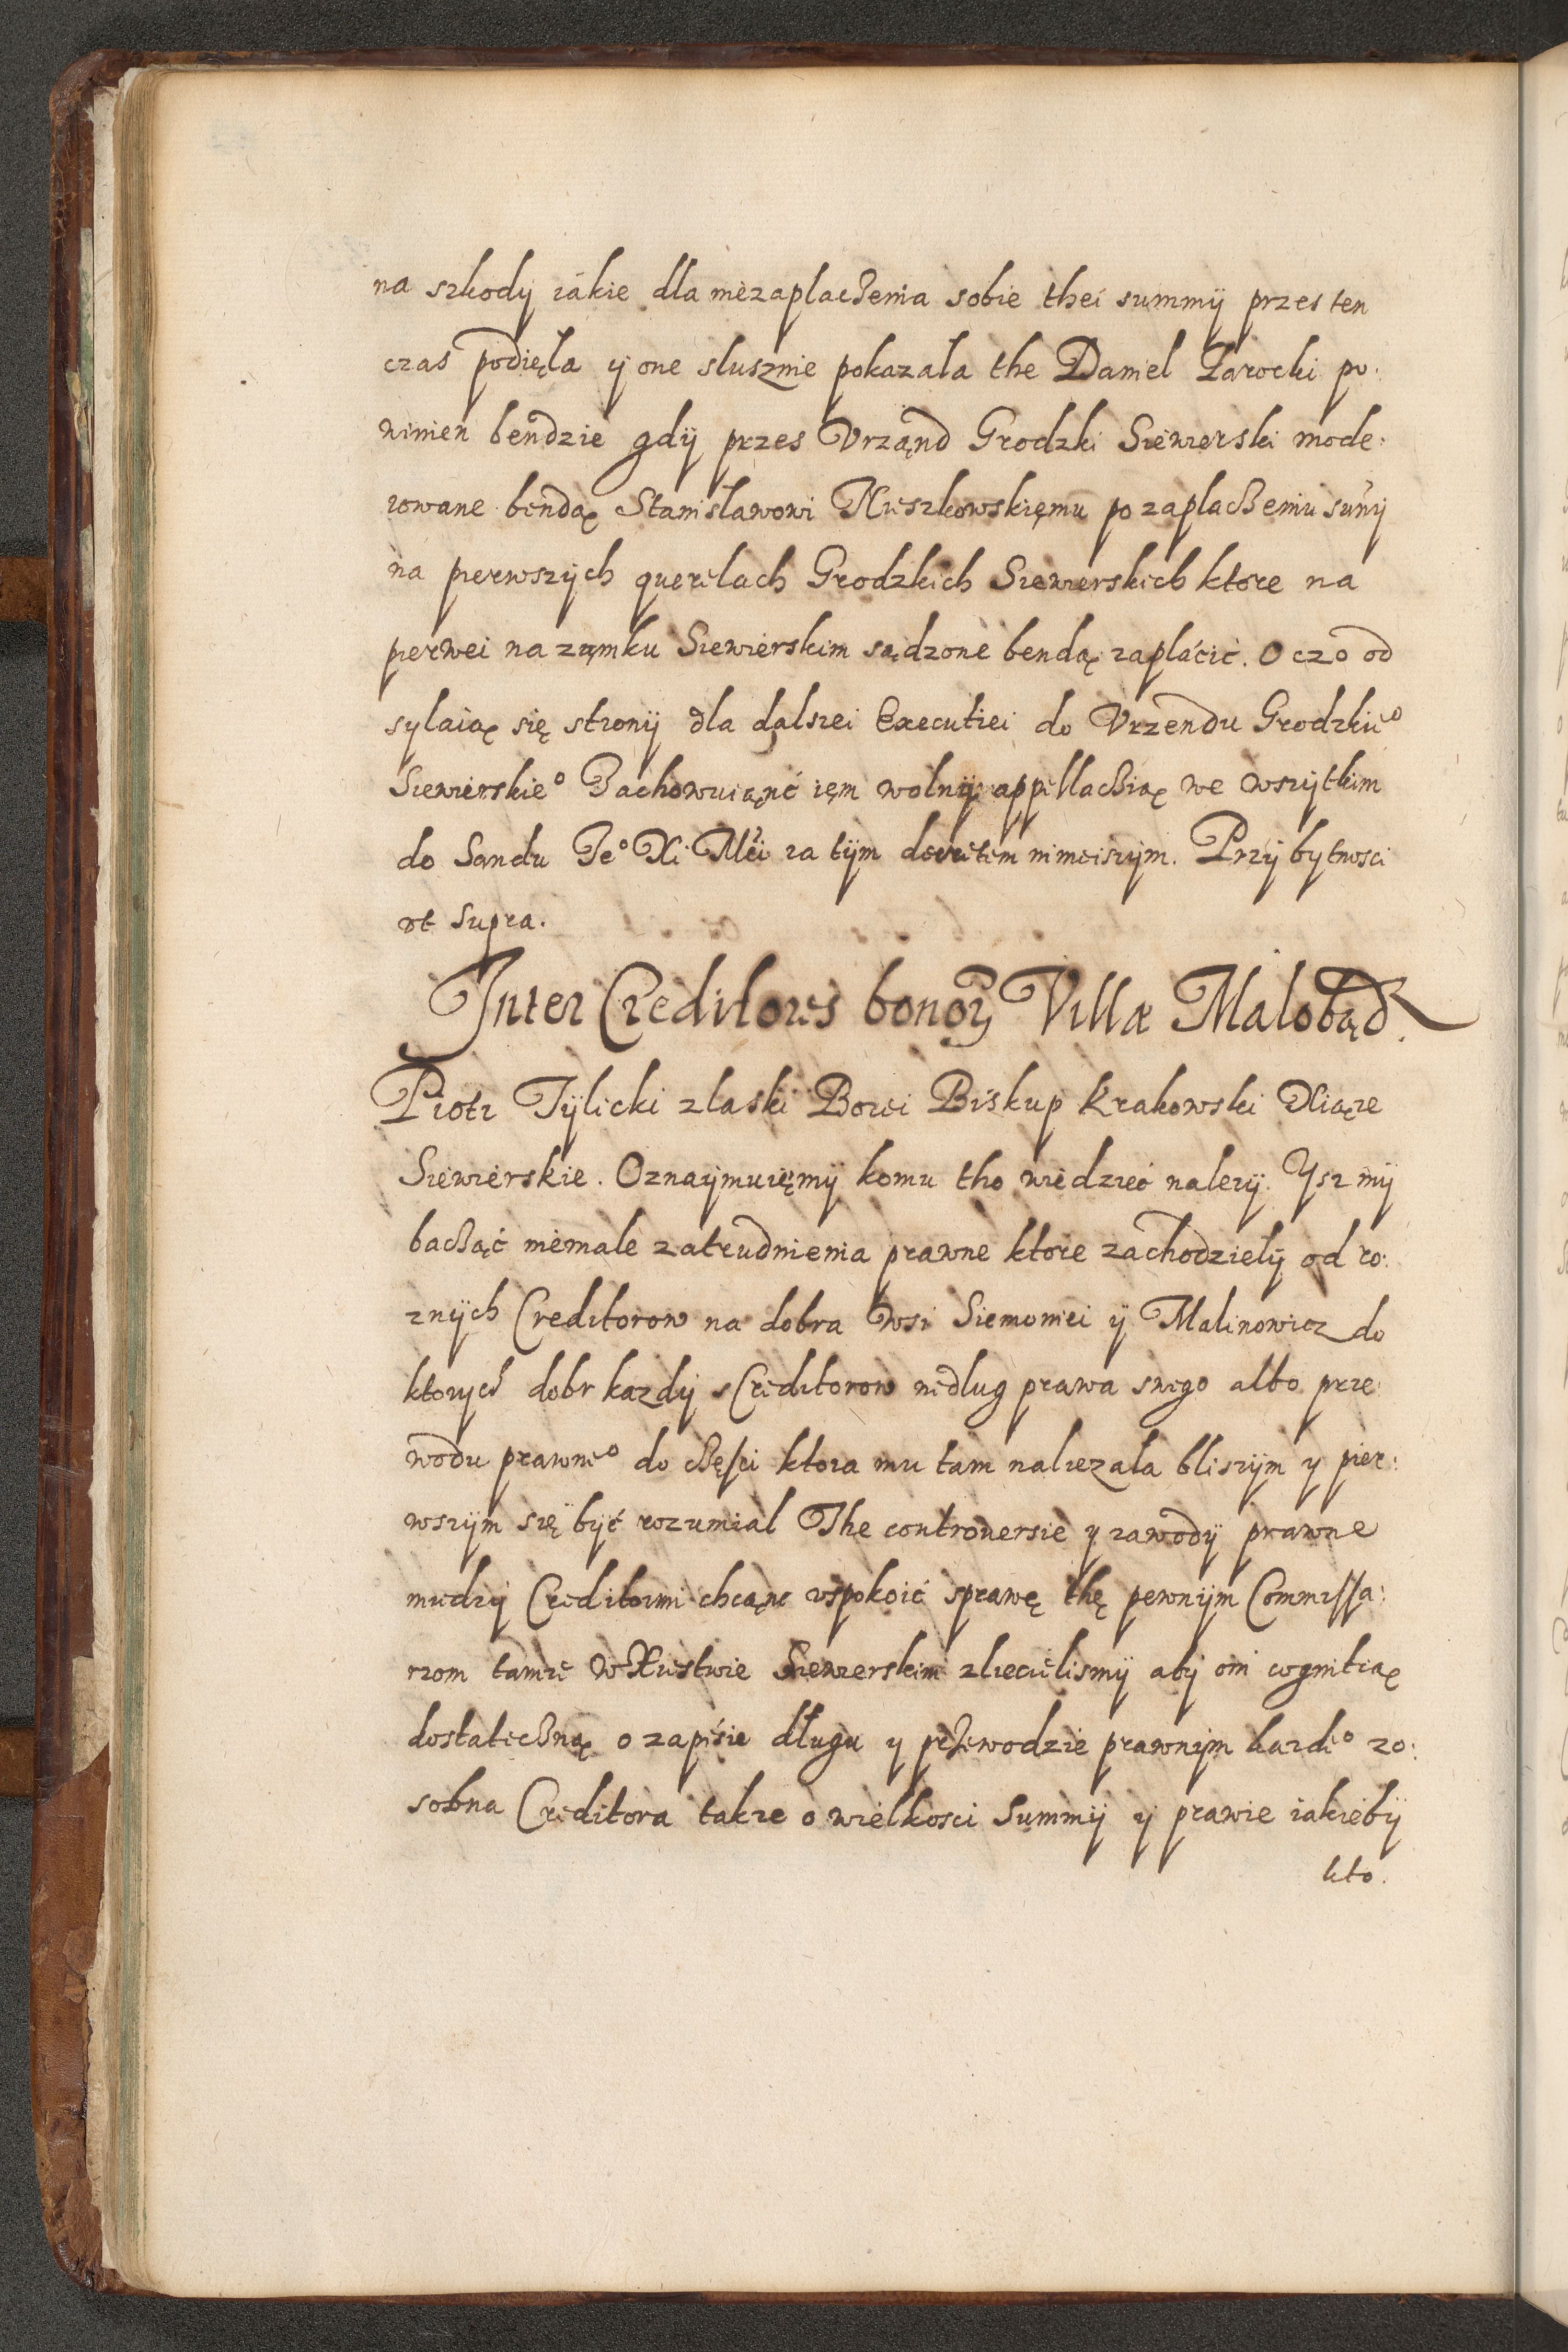 na szkody iákie dla niezaplaczenia sobie thei summÿ przes ten
czas podięla ÿ one slusznie pokazala the Daniel Zarocki po:
winien bendzie gdÿ przes Vrząnd Grodzki Siewierski mode:
rowane bendą Stanislawowi Mieszkowskięmu po zaplaczeniu sum̃ÿ
na pierwszÿch querelach Grodzkich Siewierskich ktore na
pierwei na zamku Siewierskim sądzone bendą zaplácić. O czo od
sylaiąc się stronÿ dla dalszei Executiei do Vrzendu Grodzkieº
Siewierskieº Zachowuiąnć iem wolną appellaczią we wszÿtkim
do Sandu Jeº Xi Mci za tÿm decretem ninieiszÿm. Przÿ bytnosci
vt Supra.
Inter Creditores bonoꝝ Villæ Malobąd.
Piotr Tÿlicki z laski Bozei Biskup Krakowski Xiąze
Siewierskie. Oznaÿmuięmÿ komu tho wiedzieć nalezÿ. Ysz mÿ
bacząć niemale zatrudnienia prawne ktore zachodzielÿ od ro:
znÿch Creditorow na dobra wsi Siemoniei ÿ Malinowicz do
ktorÿch dobr kazdÿ s Creditorow wedlug prawa swego albo prze:
wodu prawneº do częsci ktora mu tam nalezala bliszÿm y pier:
wszÿm się bÿć rozumial The controuersie y zawodÿ prawne
miedzÿ Creditormi chcąnc vspokoić sprawę thę pewnÿm Commissa:
rzom tamze w Xiestwie Siewierskim zlecielismÿ abÿ oni cognitią
dostateczną o zapisie długu y przewodzie prawnÿm kazdeº zo:
sobna Creditora takze o wielkosci Summÿ ÿ prawie iakiebÿ
kto.